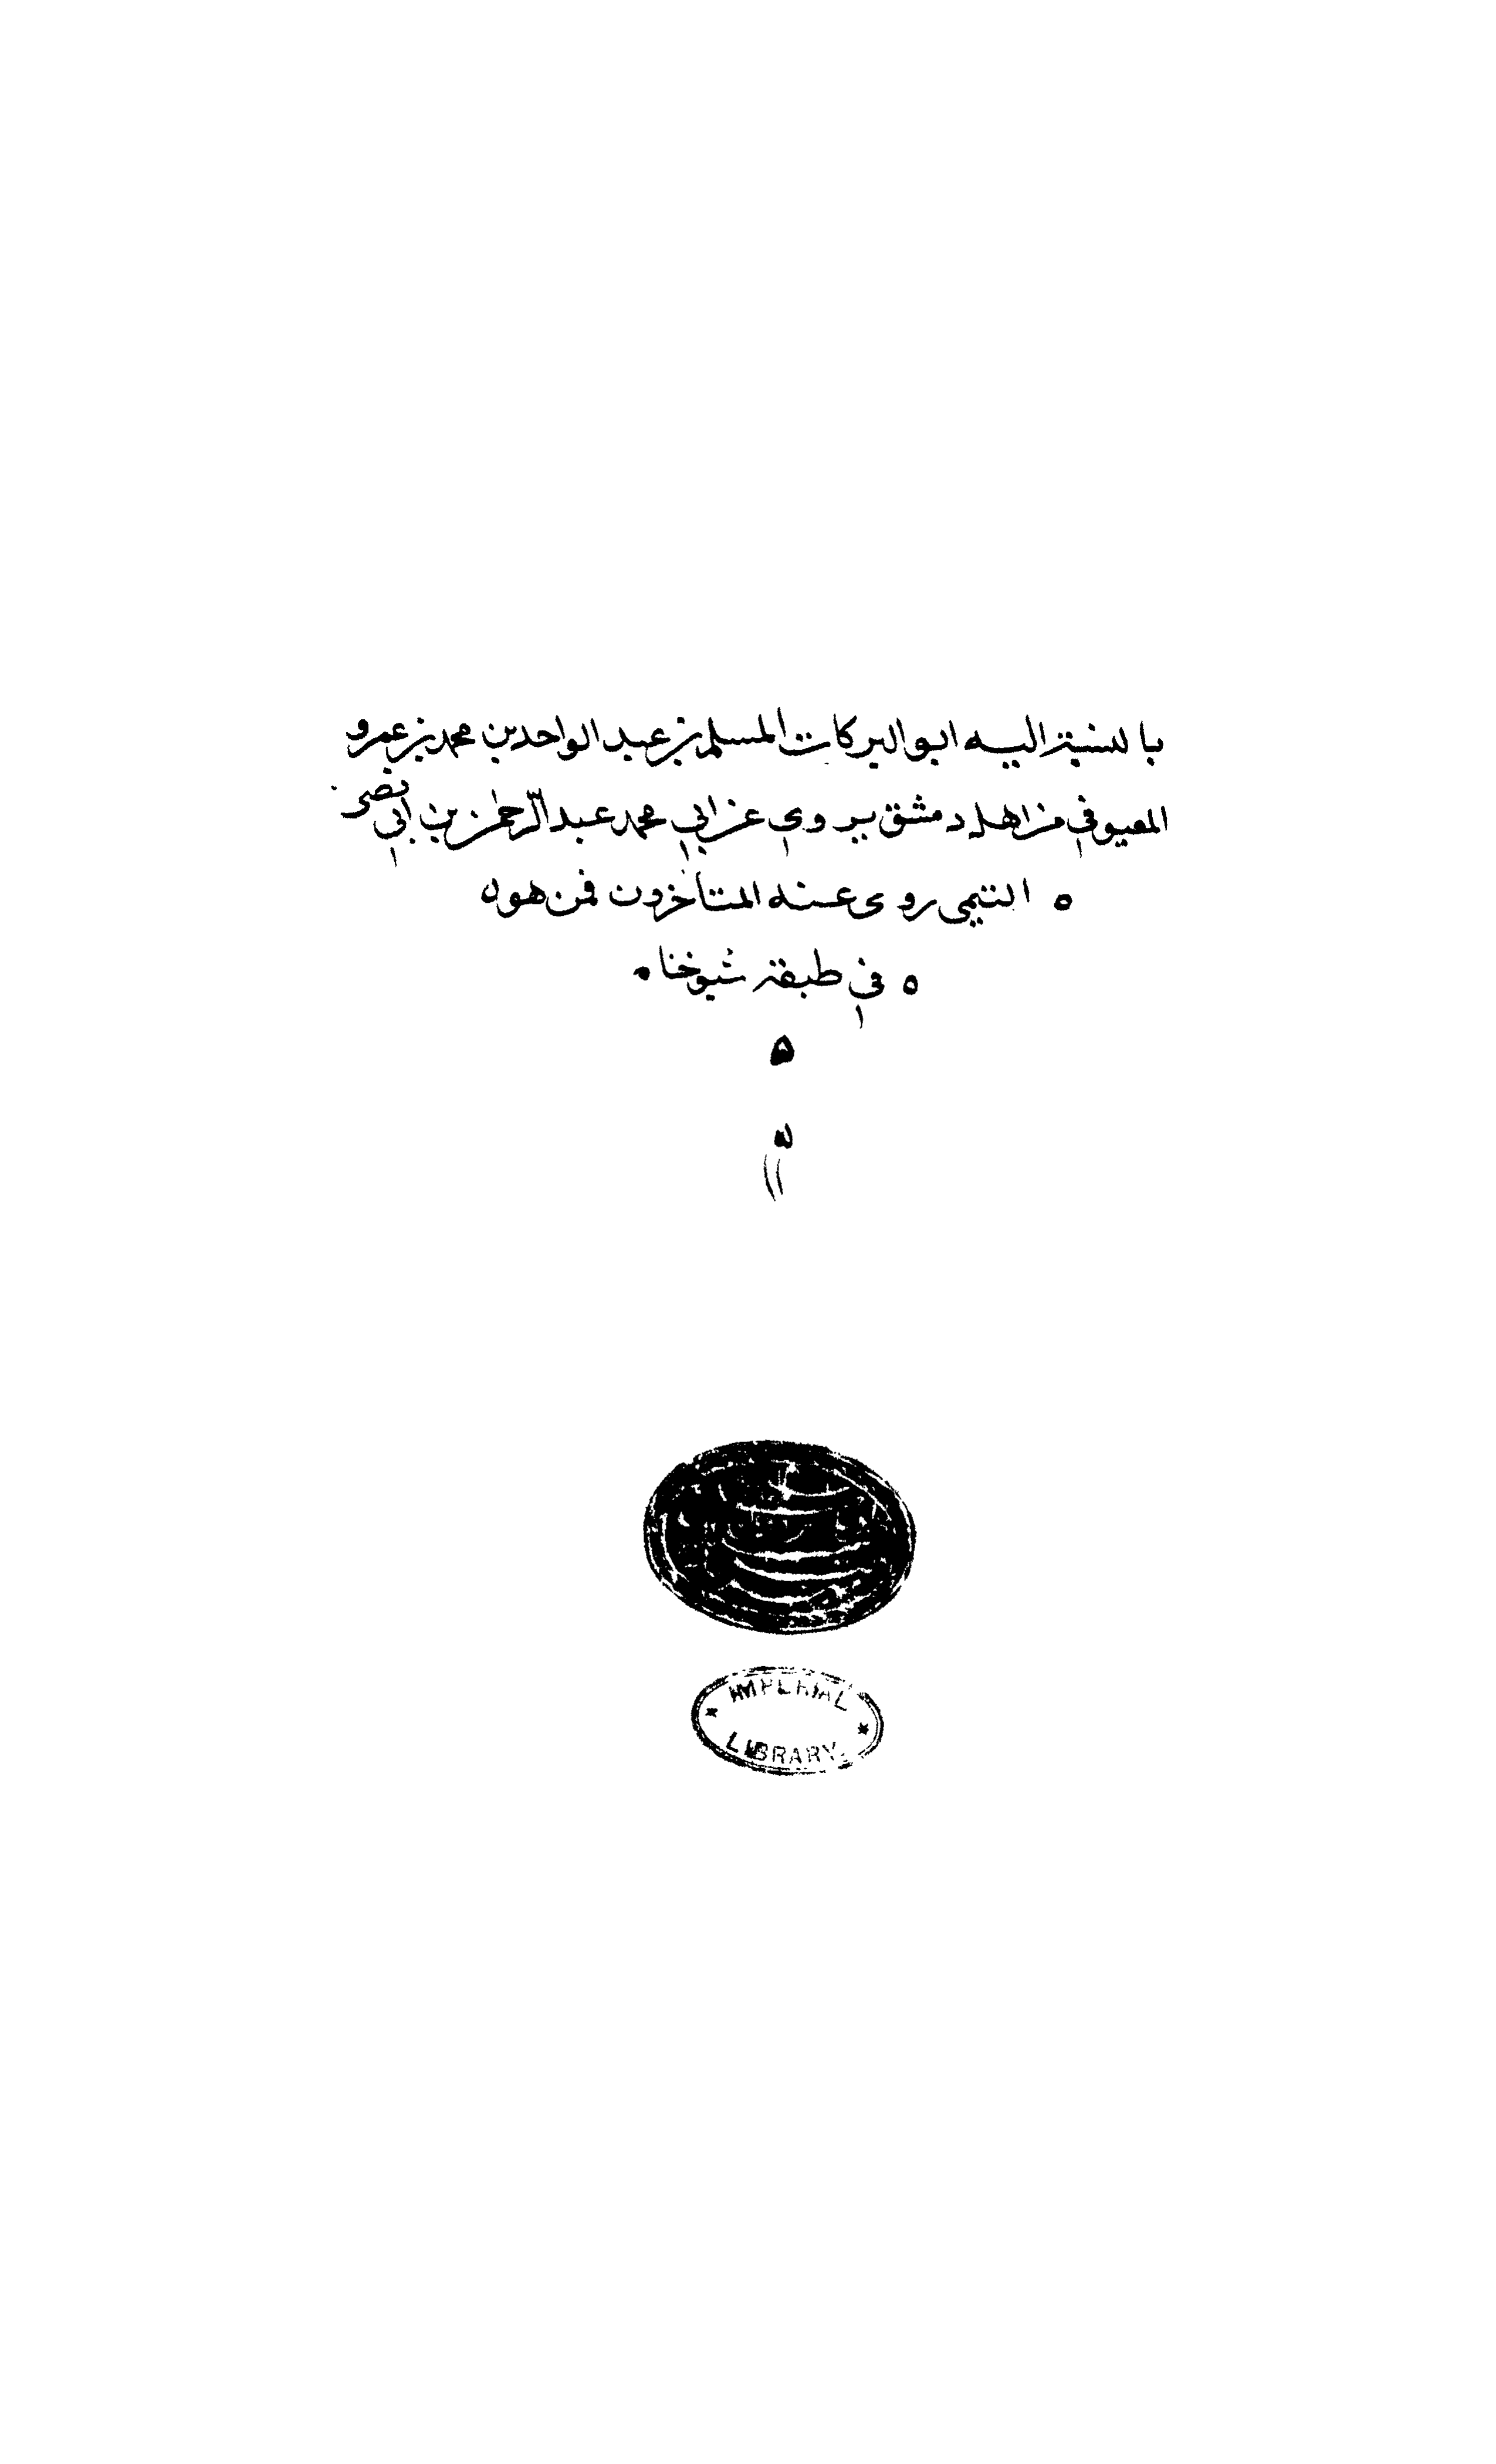 بالنسبة اليه ابو البركات المسلم بن عبد الواحد بن محمد بن عمرو
المعيوفي من اهل دمشق يروي عن ابي محمد عبد الرحمن بن ابي نصر
التيمي روى عنه المتأخرون فمن هو
في طبقة شيوخنا
IMPERIAL
LIBRARY